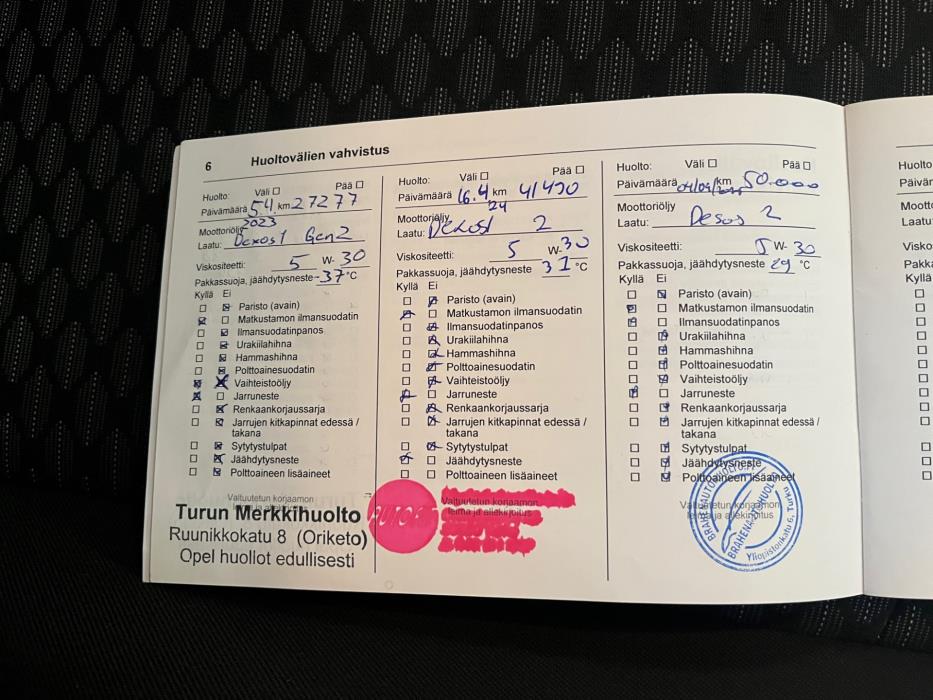 6 Huoltovälien vahvistus
Huolto: Väli Pää
Päivämäärä 5.4. km 27277
2023
Moottoriöljy
Laatu: Dexos1 Gen2
Viskositeetti: 5 W- 30
Pakkassuoja, jäähdytysneste -37 °C
Kyllä Ei
Paristo (avain)
Matkustamon ilmansuodatin
Ilmansuodatinpanos
Urakiilahihna
Hammashihna
Polttoainesuodatin
Vaihteistoöljy
Jarruneste
Renkaankorjaussarja
Jarrujen kitkapinnat edessä /
takana
Sytytystulpat
Jäähdytysneste
Polttoaineen lisäaineet
Valtuutetun korjaamon
Turun Merkkihuolto
Ruunikkokatu 8 (Oriketo)
Opel huollot edullisesti
Huolto: Väli Pää
Päivämäärä 16.4 km 41490
'24
Moottoriöljy
Laatu: Dexos1 2
Viskositeetti: 5 W- 30
Pakkassuoja, jäähdytysneste 31 °C
Kyllä Ei
Paristo (avain)
Matkustamon ilmansuodatin
Ilmansuodatinpanos
Urakiilahihna
Hammashihna
Polttoainesuodatin
Vaihteistoöljy
Jarruneste
Renkaankorjaussarja
Jarrujen kitkapinnat edessä /
takana
Sytytystulpat
Jäähdytysneste
Polttoaineen lisäaineet
Valtuutetun korjaamon
leima ja allekirjoitus
Huolto: Väli Pää
Päivämäärä km 50.000
Moottoriöljy
Laatu: Desos 2
Viskositeetti: 5 W- 30
Pakkassuoja, jäähdytysneste 29 °C
Kyllä Ei
Paristo (avain)
Matkustamon ilmansuodatin
Ilmansuodatinpanos
Urakiilahihna
Hammashihna
Polttoainesuodatin
Vaihteistoöljy
Jarruneste
Renkaankorjaussarja
Jarrujen kitkapinnat edessä /
takana
Sytytystulpat
Jäähdytysneste
Polttoaineen lisäaineet
Valtuutetun korjaamon
leima ja allekirjoitus
BRAHENAUTOHUOLTO
Yliopistonkatu 9 Turku
Huolto
Päivär
Mootto
Laatu:
Visko
Pakka
Kyllä